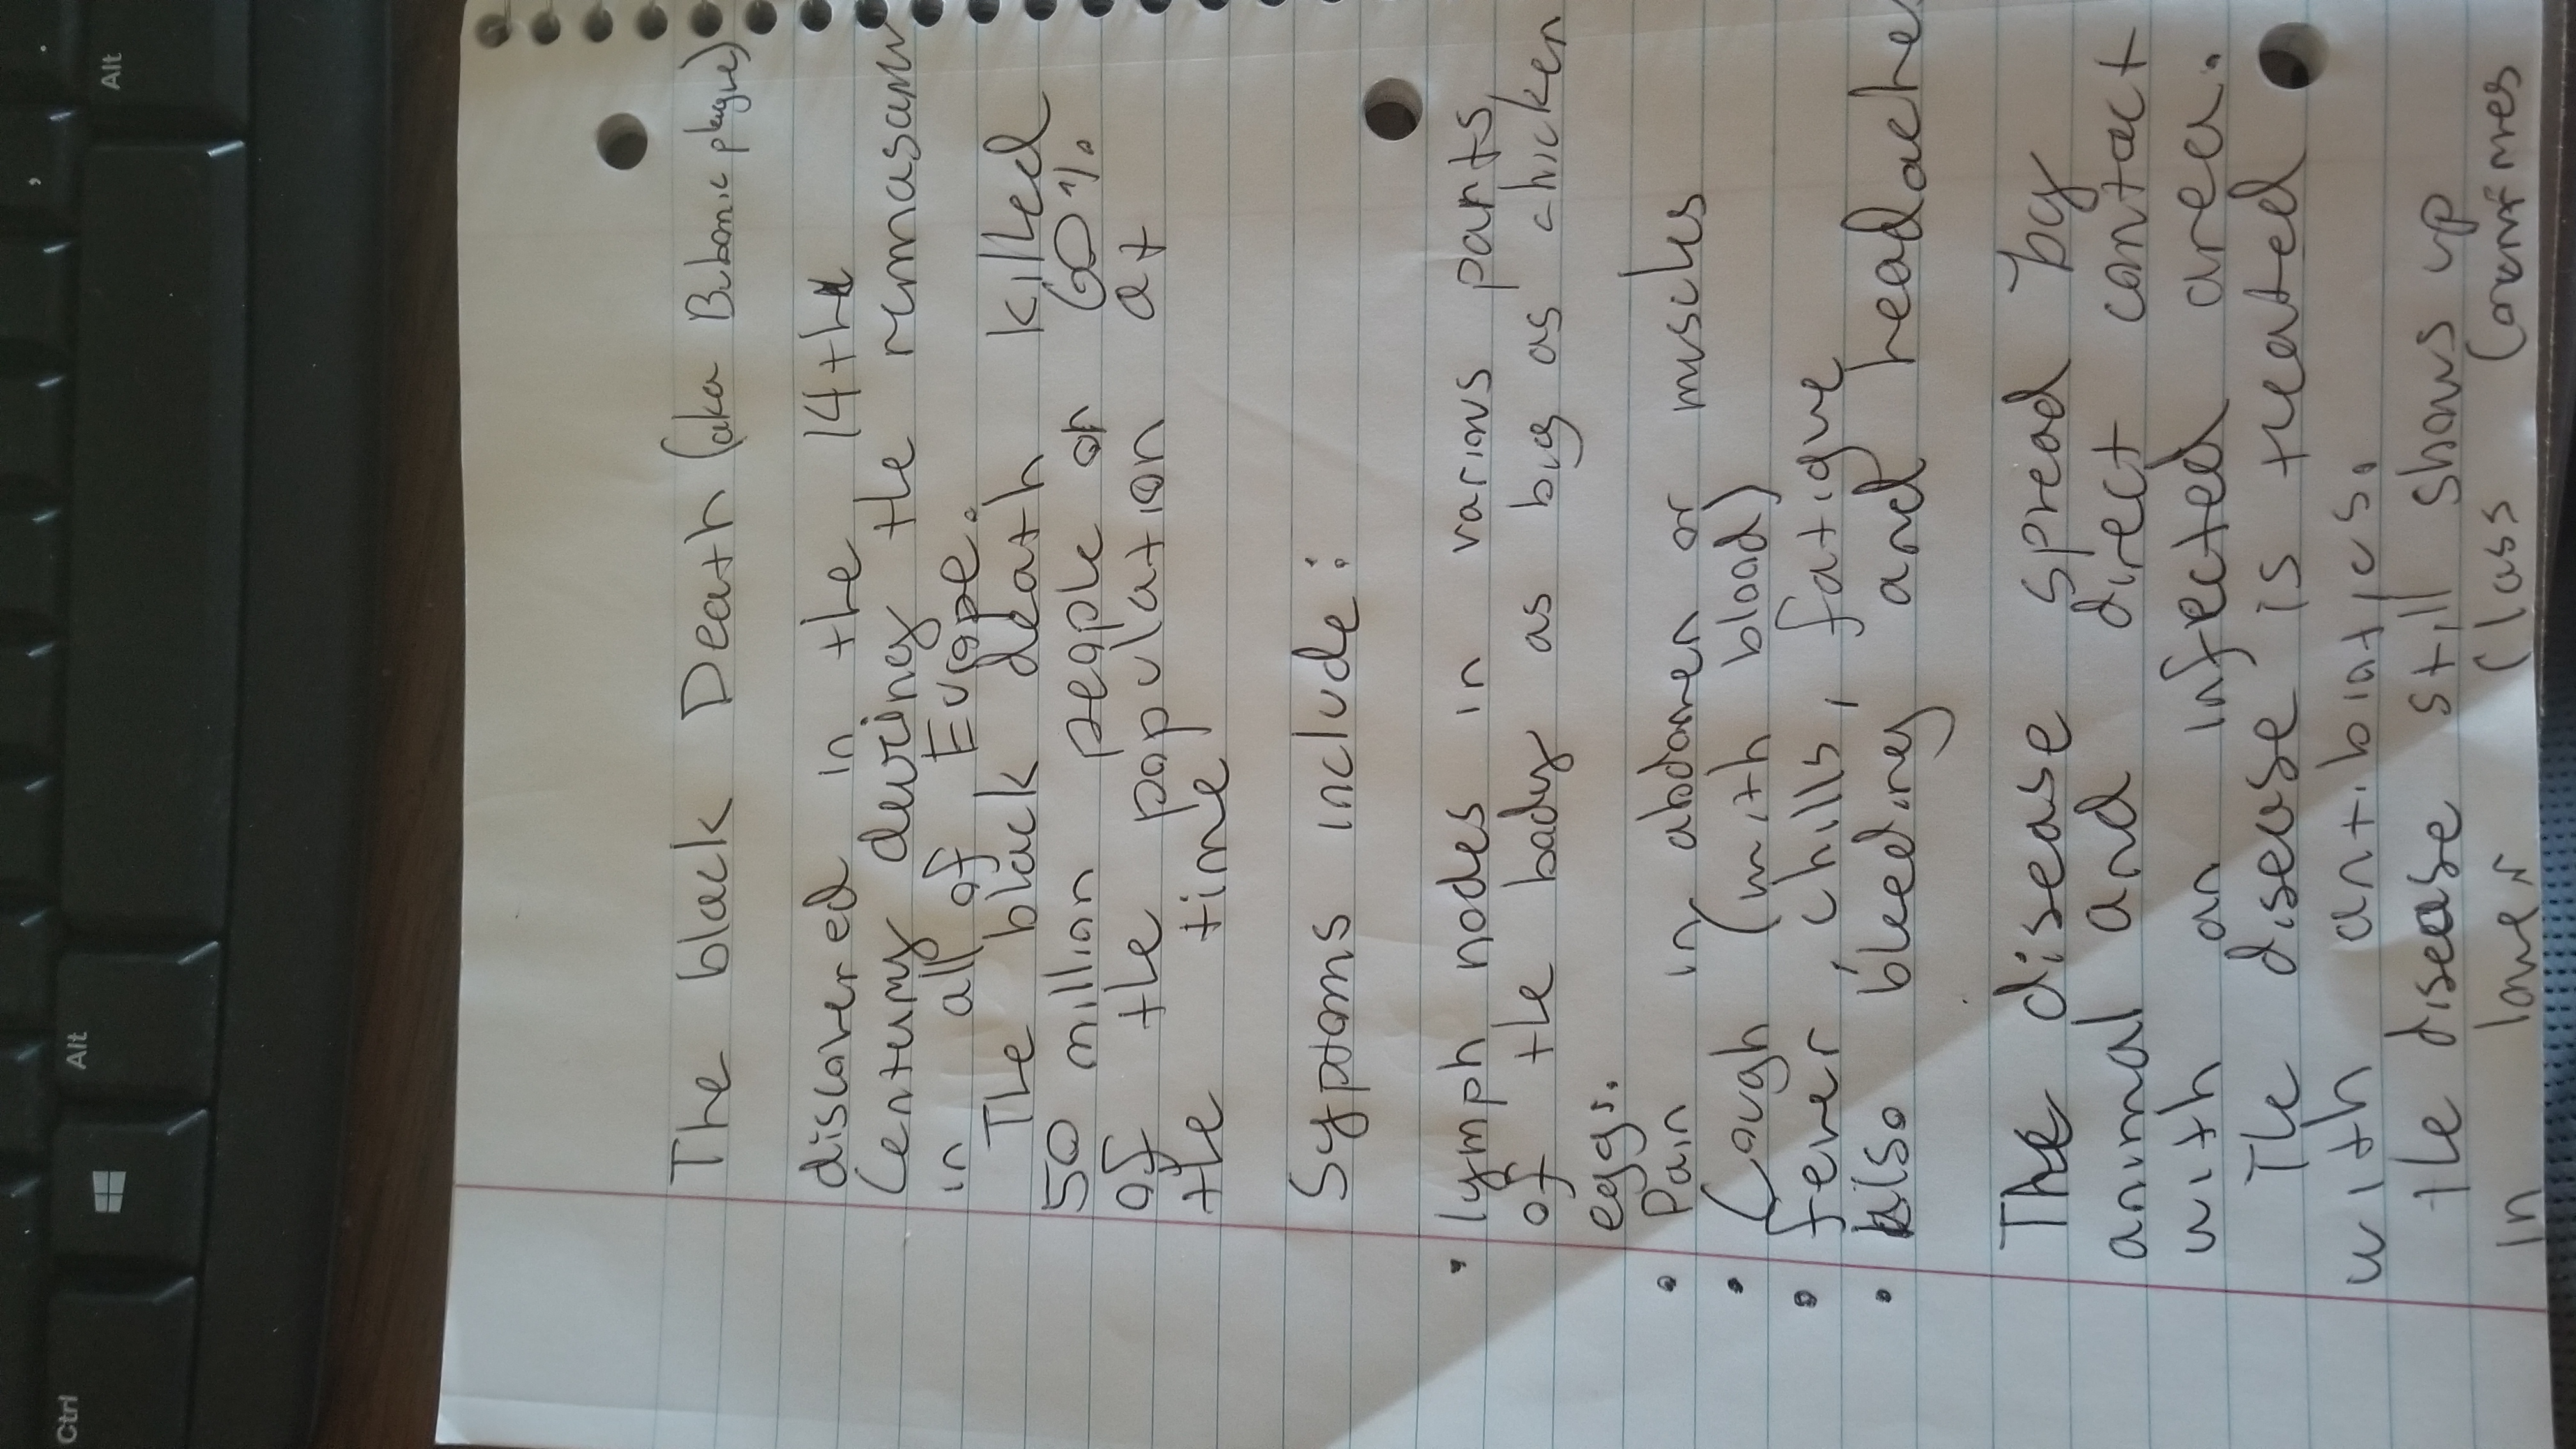 Ctrl
Alt
Alt
,
.
The black Death (aka Bubonic plague)
discovered in the 14th
Century during the rennasann
in all of Europe.
The black death killed
50 million people or 60%
of the population at
the time
Syptoms include:
• lymph nodes in various parts
of the body as big as chicken
eggs.
• Pain in abdomen or muscles
• Cough (with blood)
• fever, chills, fatigue
• Also bleeding and headache
The disease spread by
animal and direct contact
with an infected area.
The disease is treated
with antibiotics.
the disease still shows up
in lower class countries